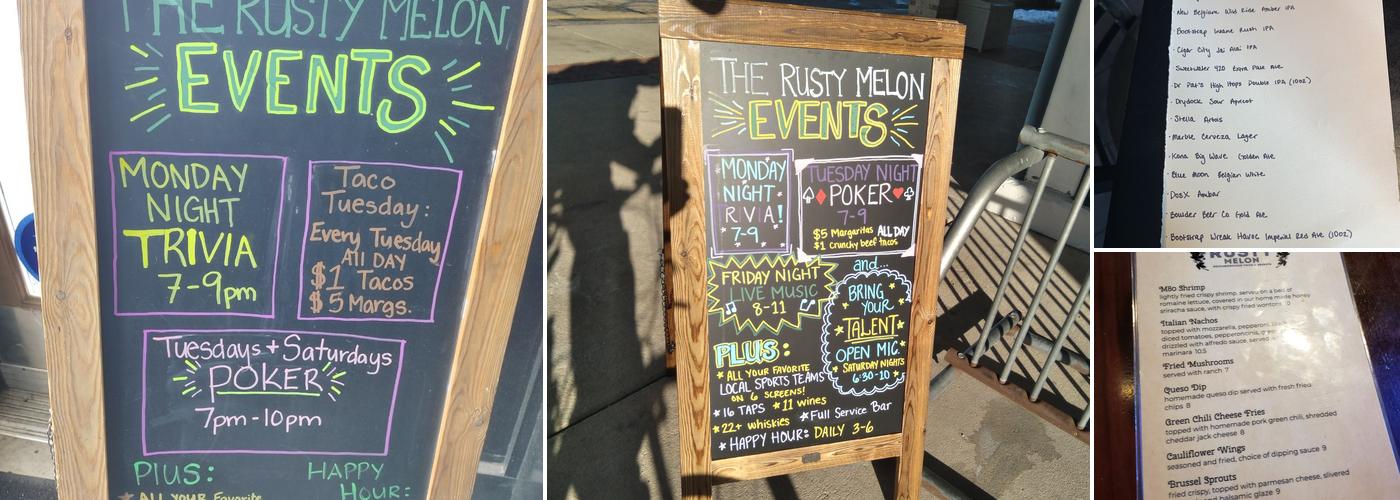 THE RUSTY MELON
EVENTS
MONDAY
NIGHT
TRIVIA
7-9pm
Taco
Tuesday:
Every Tuesday
All DAY
$1 Tacos
$5 Margs.
Tuesdays + Saturdays
POKER
7pm-10pm
PLUS:
ALL YOUR Favorite
HAPPY
HOUR:
THE RUSTY MELON
EVENTS
MONDAY
NIGHT
TRIVIA!
7-9
TUESDAY NIGHT
POKER
7-9
$5 Margaritas ALL DAY
$1 crunchy beef tacos
FRIDAY NIGHT
LIVE MUSIC
8-11
and...
BRING
YOUR
TALENT
OPEN MIC
SATURDAY NIGHTS
6:30-10
PLUS:
ALL YOUR FAVORITE
LOCAL SPORTS TEAMS
ON 6 SCREENS!
16 TAPS 11 wines
22+ whiskies Full Service Bar
HAPPY HOUR: DAILY 3-6
New Belgium Ride Amber IPA
Bootstrap Insane Rush IPA
Cigar City Jai Alai IPA
Sweetwater 420 Extra Pale Ale
Dr Pat's High Hops Double IPA (10oz)
Drydock Sour Apricot
Stella Artois
Marble Cerveza Lager
Kona Big Wave Golden Ale
Blue Moon Belgian White
DosX Ambar
Boulder Beer Co Gold Ale
Bootstrap Wreak Havoc Imperial Red Ale (10oz)
RUSTY
MELON
M80 Shrimp
lightly fried crispy shrimp, served on a bed of
romaine lettuce, covered in our home made honey
sriracha sauce, with crispy fried wontons 10
Italian Nachos
topped with mozzarella, pepperoni,
diced tomatoes, pepperoncinis,
drizzled with alfredo sauce, served
marinara 10.5
Fried Mushrooms
served with ranch 7
Queso Dip
homemade queso dip served with fresh fried
chips 8
Green Chili Cheese Fries
topped with homemade pork green chili, shredded
cheddar jack cheese 8
Cauliflower Wings
seasoned and fried, choice of dipping sauce 9
Brussel Sprouts
fried crispy, topped with parmesan cheese, slivered
and balsamic glaze 9